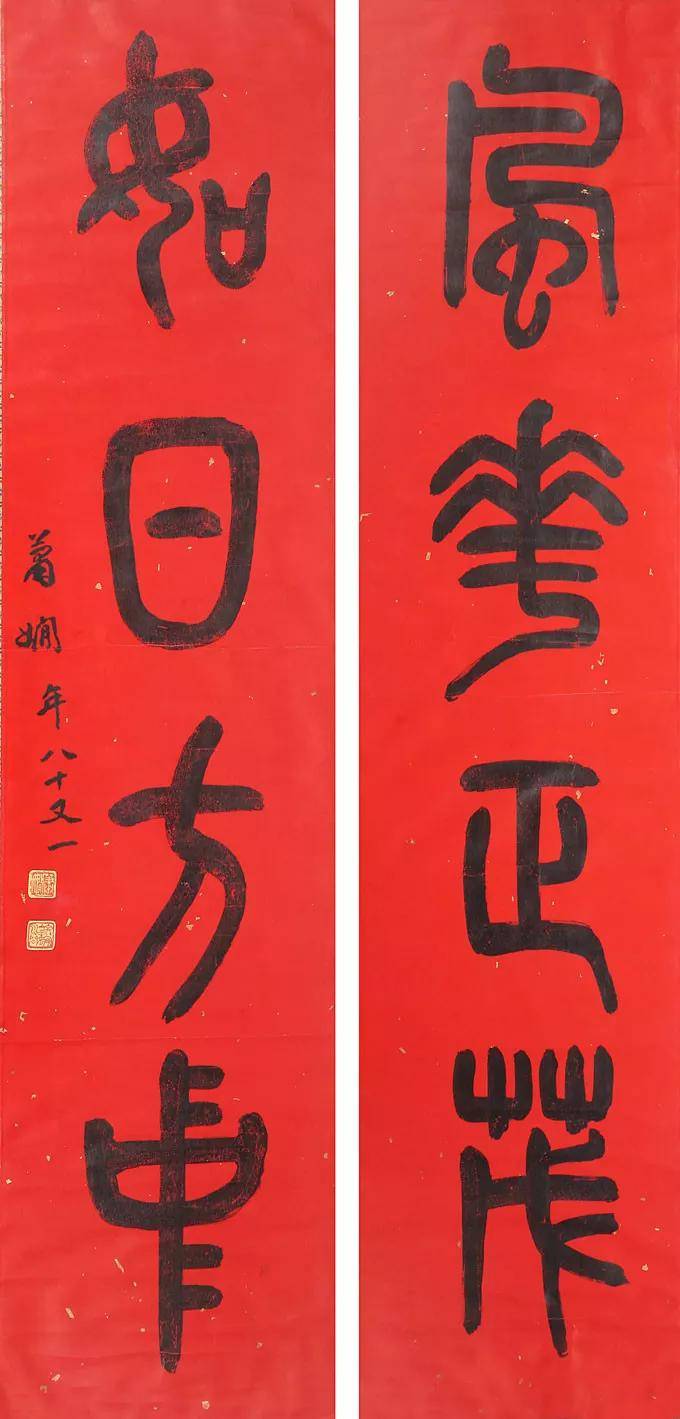 風華正茂
如日方中
蕭嫻年八十又一